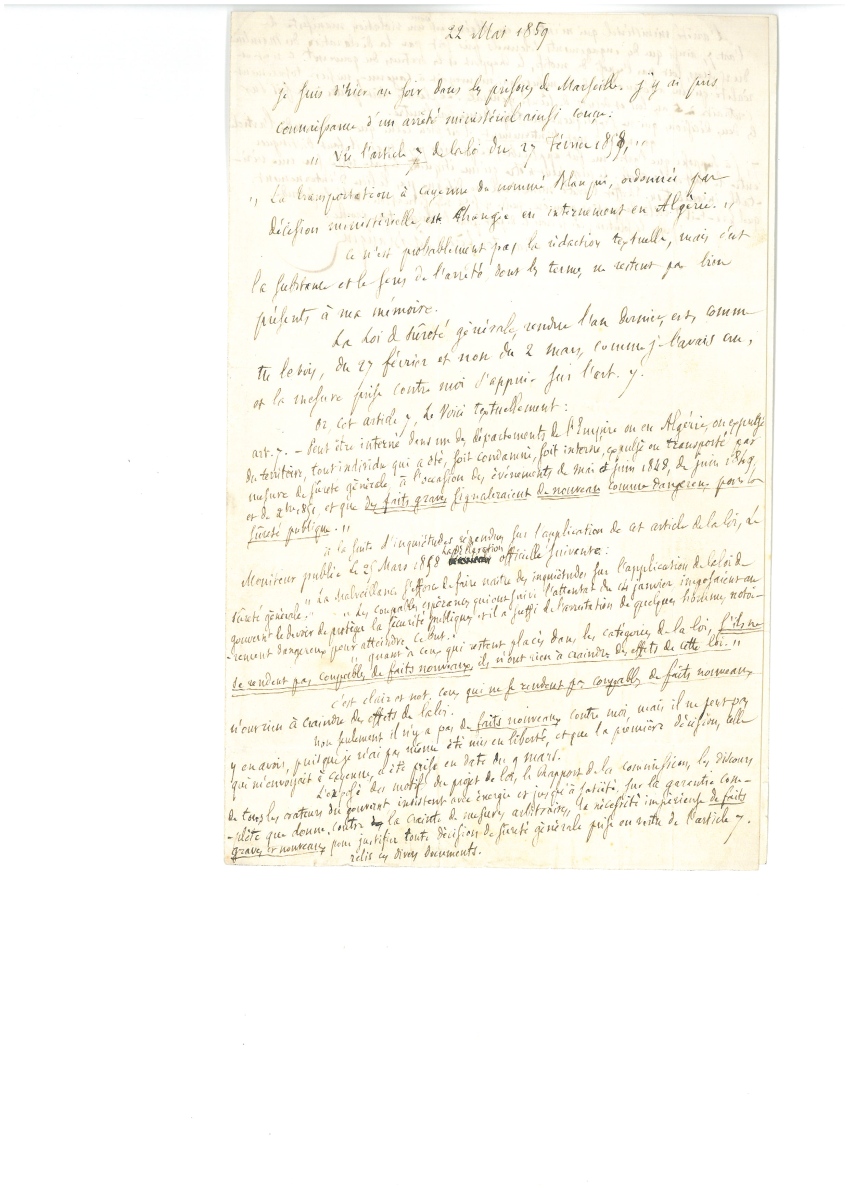 22 Mai 1859
je suis d'hier au soir dans les prisons de Marseille. j'y ai pris
connaissance d'un arrêté ministériel ainsi conçu:
" Vu l'article 7 de la loi du 27 février 1858, "
" La transportation à Cayenne du nommé Blanqui, ordonnée par
décision ministérielle est changée en internement en Algérie. "
Ce n'est probablement pas la rédaction textuelle, mais c'est
la substance et le sens de l'arrêté dont les termes ne restent pas bien
présents à ma mémoire.
La Loi de sûreté générale, rendue l'an dernier, est, comme
tu le vois, du 27 février et non du 2 mars, comme je l'avais cru,
et la mesure prise contre moi s'appuie sur l'art. 7.
Or, cet article 7, le voici textuellement:
art. 7. – Peut être interné dans un des départements de l'Empire ou en Algérie, ou expulsé
du territoire, tout individu qui a été, soit condamné, soit interné, expulsé ou transporté par
mesure de sûreté générale à l'occasion des événements de mai et juin 1848, de juin 1849,
et de 1851, et que des faits graves signaleraient de nouveau comme dangereux pour la
sûreté publique. "
à la suite d'inquiétudes répandues sur l'application de cet article de la loi, le
Moniteur publie le 25 Mars 1858 la déclaration officielle suivante:
" La malveillance s'efforce de faire naître des inquiétudes sur l'application de la loi de
sûreté générale, " " Les coupables espérances qui ont suivi l'attentat du 14 janvier imposaient au
gouvernt le devoir de protéger la sécurité publique, et il a suffi de l'arrestation de quelques hommes notoi-
rement dangereux pour atteindre ce but. "
" quant à ceux qui restent placés dans les catégories de la loi, s'ils ne
se rendent pas coupables de faits nouveaux, ils n'ont rien à craindre des effets de cette loi. "
C'est clair et net. ceux qui ne se rendent pas coupables de faits nouveaux
n'ont rien à craindre des effets de la loi.
non seulement il n'y a pas de faits nouveaux contre moi, mais il ne peut pas
y en avoir, puisque je n'ai pas même été mis en liberté, et que la première décision, celle
qui m'envoyait à Cayenne, a été prise en date du 9 mars.
L'exposé des motifs du projet de loi, le Rapport de la commission, les discours
de tous les orateurs du gouvernt insistent avec énergie et jusqu'à satiété, sur la garantie com-
plète que donne, contre la crainte de mesures arbitraires, la nécessité impérieuse de faits
graves et nouveaux pour justifier toute décision de sûreté générale prise en vertu de l'article 7.
relis ces divers documents.